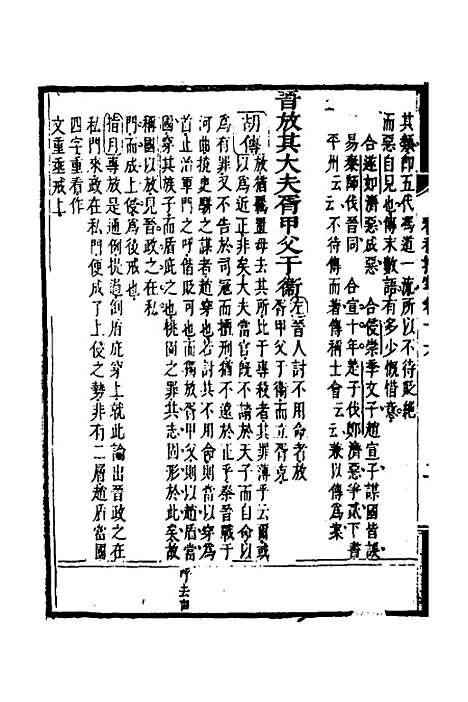 其敝即五代馮道一流所以不待貶絕
而惡自見也傳末數語有多少慨惜意
合遂如濟惡成惡 合侵崇季文子趙宣子謀國皆誤
易秦師伐晉同 合宣十年楚子伐鄭濟惡爭貳下書
平州云云不待傳而著傳稱士會云云兼以傳為案
晉放其大夫胥甲父于衞 左晉人討不用命者放
胥甲父于衞而立胥克
胡傳放猶羈置毋去其所比于專殺者其罪薄乎云爾或
以為近正非矣大夫當官既不請於天子而自命以
為有罪又不告於司寇而擅刑猶不遠於正乎秦晉戰于
河曲撓臾駢之謀者趙穿也若討其不用命則當以穿為
首止治軍門之呼 胥甲父則以趙當
國穿其族子而盾庇之也桃園之罪其志固形於此矣故
稱國以放見晉政之在私
門而成上侵為後戒也
指月專放是通例從道 盾庇穿上就此論出晉政之在
私門來政在私門便成了上侵之勢非有二層趙盾當國
四字重看作
文重垂戒上
呼去